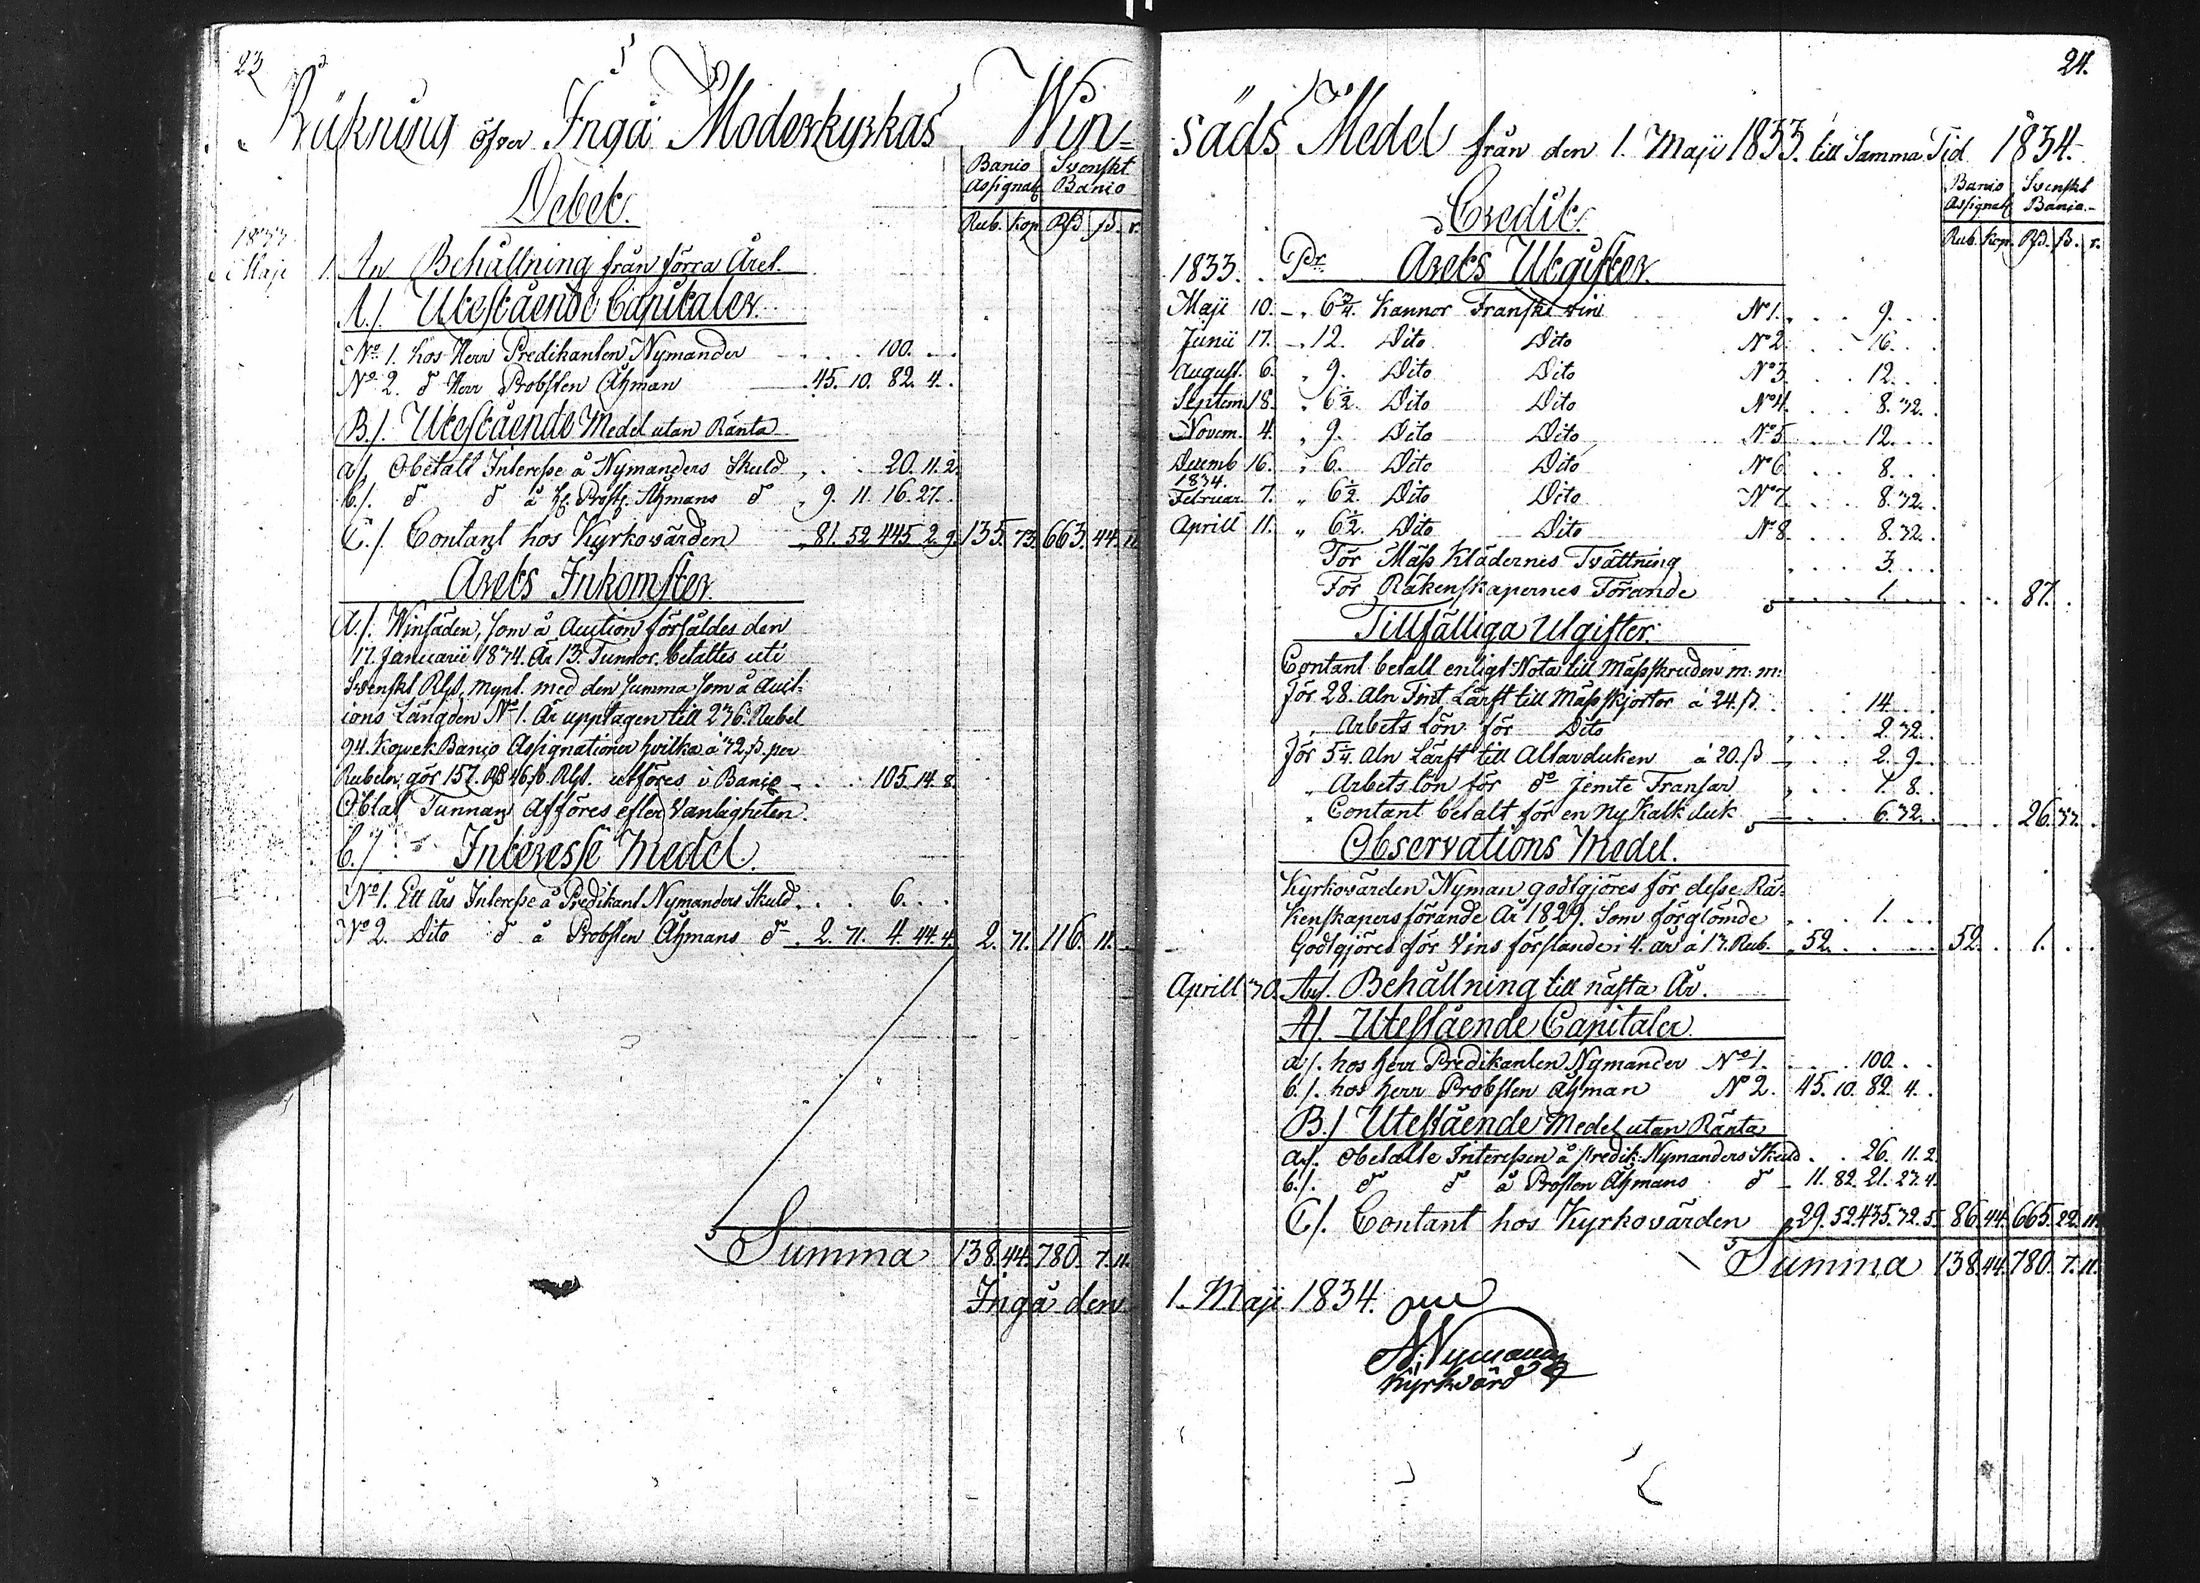 23
Räkning öfver Ingå Moderkyrkas Win=
Debet.
Banco Assignat. Svenskt Banco
Rub. Kop. Rd. ß. r.
1833
Maji 1. An Behållning från förra Året.
A./. Utestående Capitaler.
No. 1. hos Herr Predikanten Nymander . . . 100. . .
No. 2. d Herr Probsten Åhman 45. 10. 82. 4. .
B./. Utestående Medel utan Ränta
a/. Obetalt Interesse å Nymanders Skuld . . . 20. 11. 2.
b/. d d å H. Prosts. Åhmans d 9. 11. 16. 27. .
C./. Contant hos Kyrkovärden 81. 52. 445. 2. 9. 135. 73. 663. 44. 11.
Årets Inkomster
A./. Winsäden, som å Auction försåldes den
17. Januarii 1834. Är 13. Tunnor. betaltes uti
Svenskt Rgs. mynt. med den summa som å Auct-
ions Längden No. 1. är upptagen till 236. Rubel
94. Kopek Banco Assignationer hvilka à 32. ß. per
Rubeln, gör 157. Rd 46 ß. Rgs. utföres i Banco . . . 105. 14. 8.
Oblat Tunnan Afföres efter Vanligheten.
b./. Interesse Medel.
No. 1. Ett Års Interesse å Predikant Nymanders Skuld . . . 6. . .
No. 2. Dito d å Probsten Åhmans d . 2. 71. 4. 44. 4. 2. 71. 116. 11. -
Summa 138. 44. 780. 7. 11.
Ingå den
24.
säds Medel från den 1. Maji 1833. till Samma Tid 1834.
Credit.
Banco Assignat. Svenskt Banco.
Rub. Kop. Rd. ß. r.
1833. Pr. Årets Utgifter.
Maji 10. - „ 6 3/4. Kannor Franskt vin No. 1. . . . 9. . .
Junii 17. - „ 12. Dito Dito No 2. . . 16. . .
August. 6. „ 9. Dito Dito No 3. . . 12. . .
Septem 18. „ 6 1/2. Dito Dito No 4. . . . 8. 32. .
Novem. 4. „ 9. Dito Dito No 5. . . . 12. . .
Decemb 16. „ 6. Dito Dito No 6. . . 8. . .
1834.
Februar. 7. „ 6 1/2. Dito Dito No 7. . . . 8. 32. .
Aprill 11. „ 6 1/2. Dito Dito No 8. . . 8. 32. .
För Mäss Klädernes Tvättning . . . 3. . .
För Räkenskapernes Förande . . . 1. . . . . 87. .
Tillfälliga Utgifter.
Contant betalt enligt Nota till Mässskruden m: m:
för 28. Aln Fint Lärft till Mässskjortor à 24. ß. . . 14. . .
„ Arbets lön för Dito . . . 2. 32. .
för 5 1/4. Aln Lärft till Altarduken à 20. ß . . . 2. 9. .
„ Arbets lön för do jemte Fransar . . . 1. 8. .
„ Contant betalt för en ny Kalk duk . . . 6. 32. . . . 26. 33. .
Observations Medel.
Kyrkovärden Nyman godtgjöres för desse Rä-
kenskapers förande År 1829. Som förglömde . . . 1. . .
Godtgjöres för Vins förslande i 4. år à 13. Rub. 52. . . . . 52. . 1. . .
Aprill 30. Af Behållning till nästa År.
A/. Utestående Capitaler
a/. hos Herr Predikanten Nymander No 1. . . . 100. . .
b./. hos Herr Probsten Åhman No 2. 45. 10. 82. 4. .
B./. Utestående Medel utan Ränta
a/. Obetalte Interessen å Predik: Nymanders Skuld . . 26. 11. 2.
b./. d d å Prosten Åhmans d - 11. 82. 21. 23. 4.
C/. Contant hos Kyrkovärden 29. 52. 435. 32. 5. 86. 44. 665. 22. 11.
Summa 138. 44. 780. 7. 11.
1. Maji 1834.
Nyman
Kyrkvärd